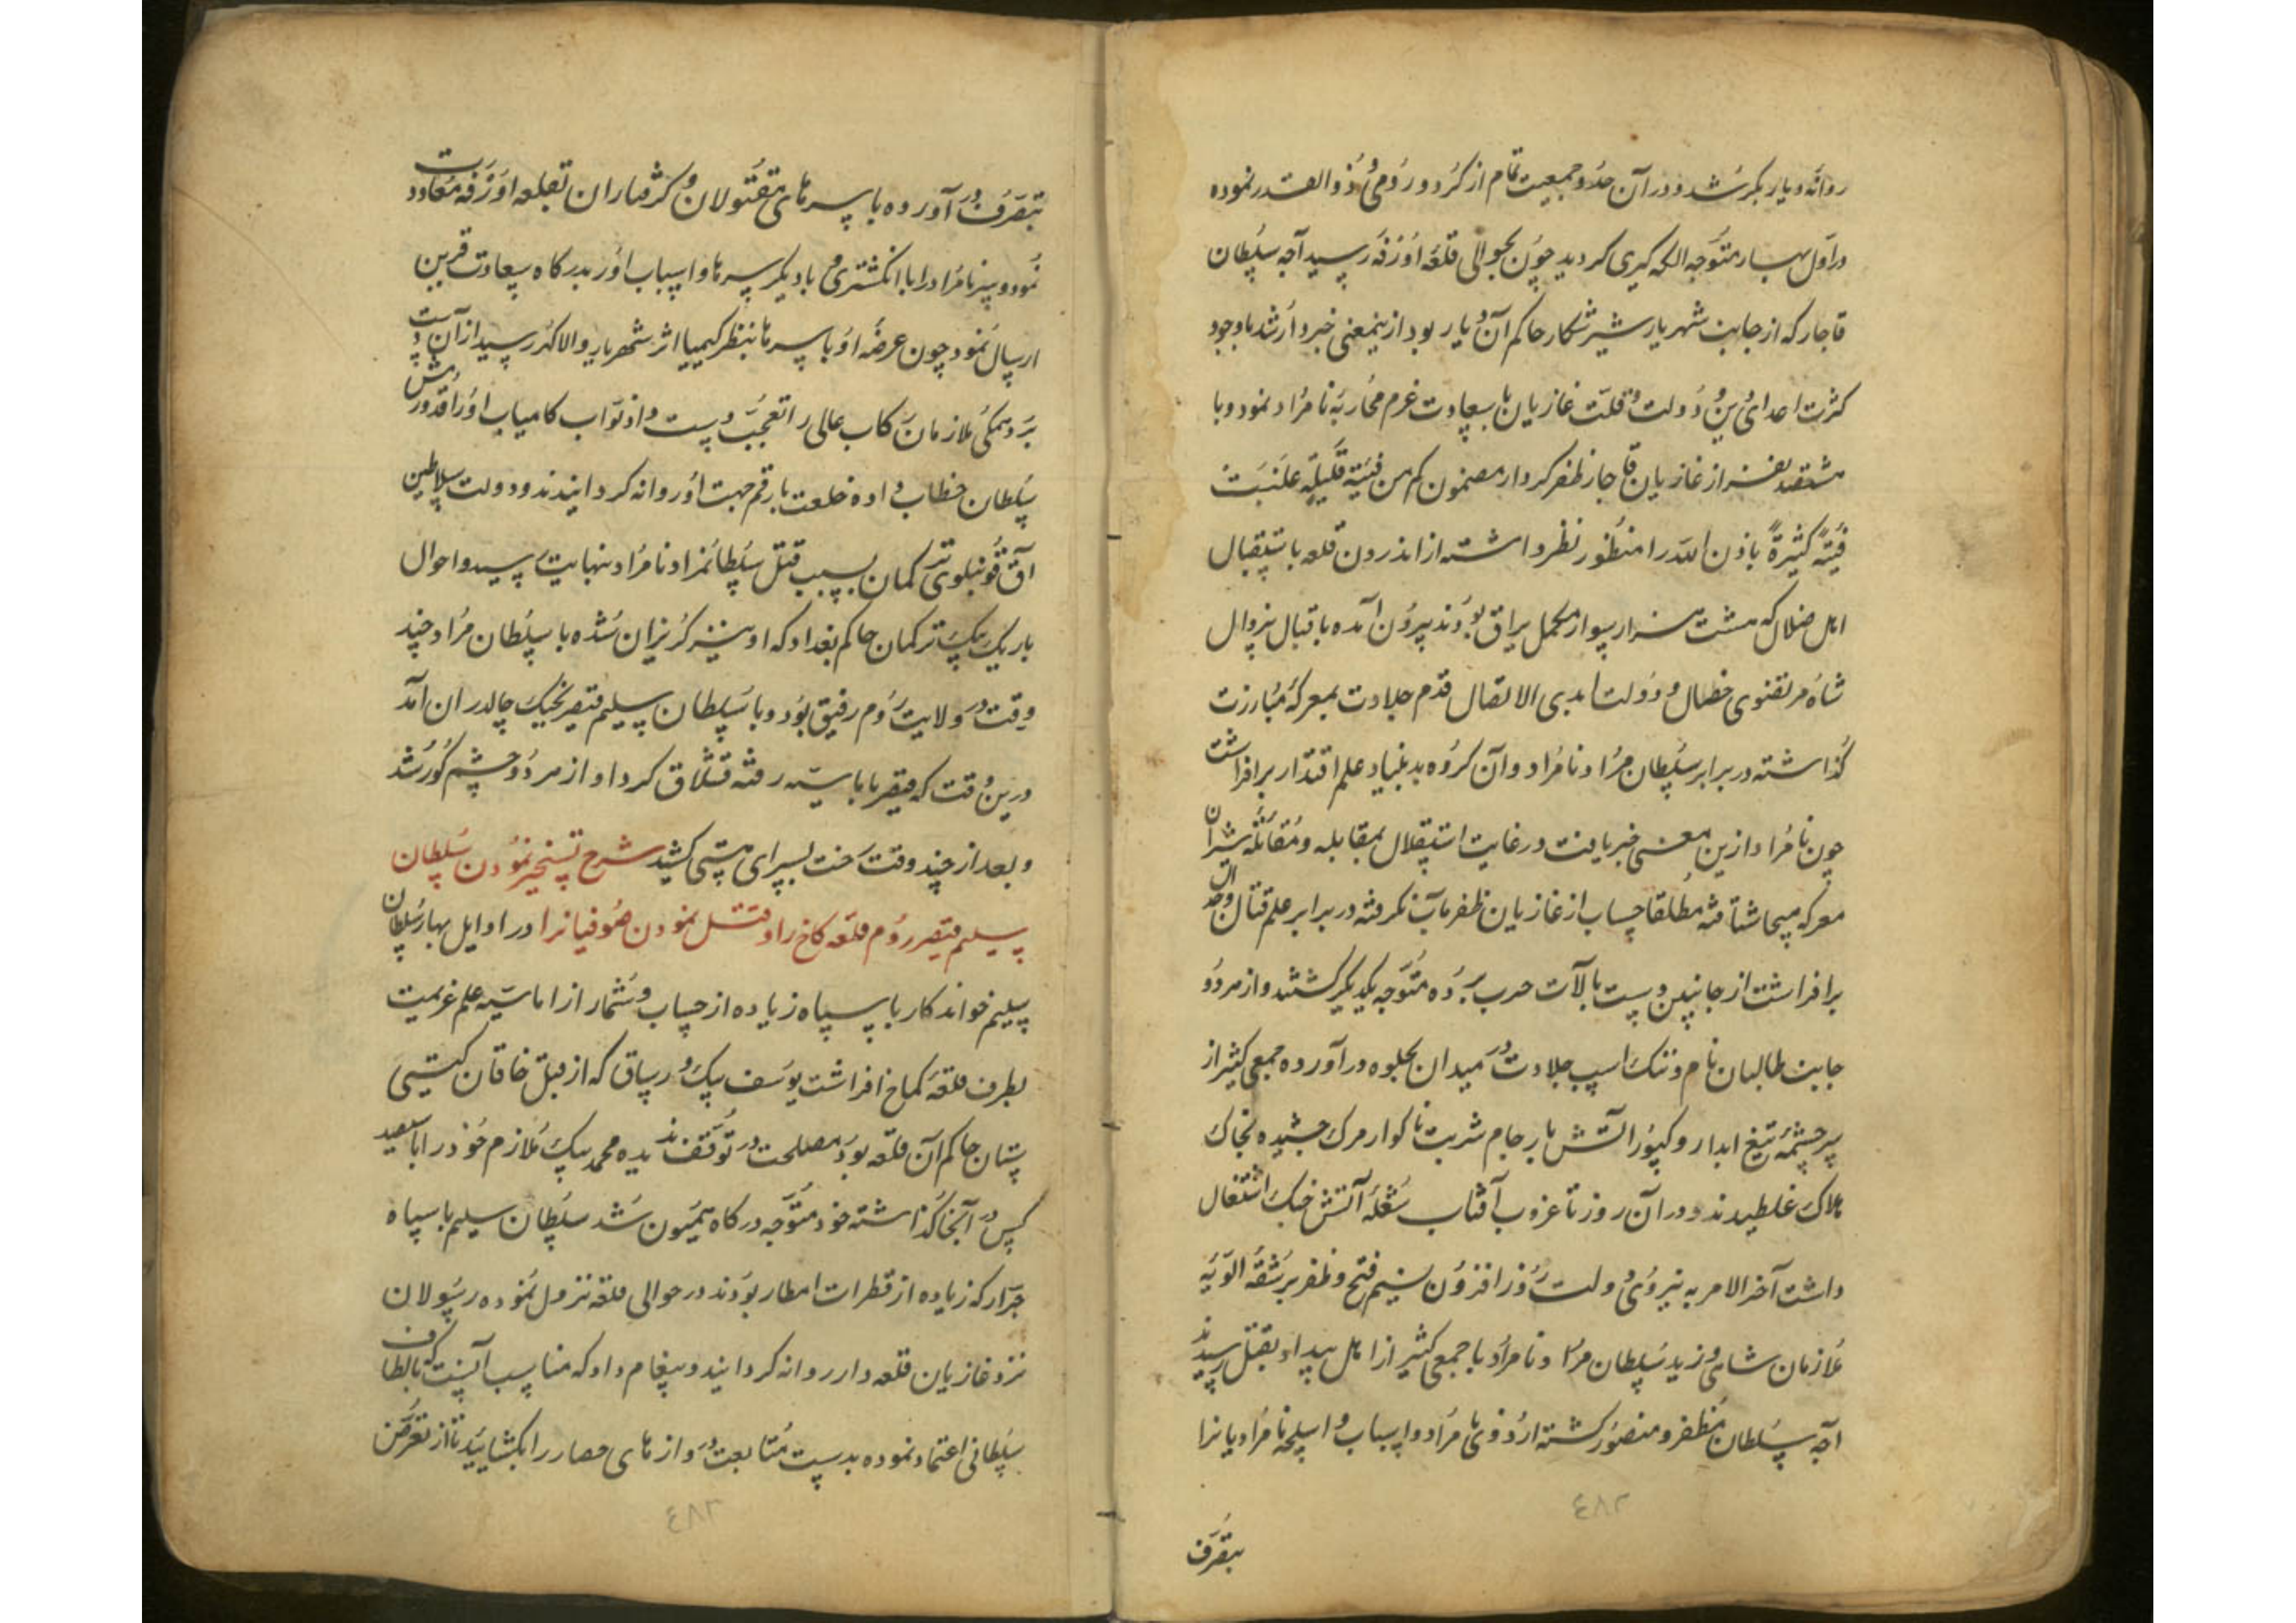 روانه دیار بکر شد و در آن حدود جمعیت تمام از کرد و رومی و ذوالقدر نموده
در اول بهار متوجه الکه گیری گردید چون بحوالی قلعه اورفه رسید آجه سلطان
قاجار که از جانب شهریار شیر شکار حاکم آن دیار بود از ینمعنی خبردار شد باوجود
کثرت اعدای دین و دولت و قلت غازیان با سعادت عزم محاربه نامراد نمود و با
هشتصد نفر از غازیان قاجار ظفر کردار مضمون کم من فئیة قلیلة غلبت
فیئة کثیرة باذن الله را منظور نظر داشته از اندرون قلعه باستقبال
اهل ضلال که هشت هزار سوار مکمل یراق بودند بیرون آمده باقبال بیزوال
شاه مرتضوی خصال و دولت ابدی الاتصال قدم جلادت بمعرکه مبارزت
گذاشته در برابر سلطان مراد نامراد و آن گروه بدبنیاد علم اقتدار برافراشت
چون نامراد ازین معنی خبر یافت در غایت استقلال بمقابله و مقاتله شیران
معرکه هیجا شتافته مطلقا حساب از غازیان ظفر مآب نگرفته در برابر علم قتال و جدال
برافراشت از جانبین دست بآلات حرب برده متوجه یکدیگر گشتند و از هر دو
جانب طالبان نام و ننک اسب جلادت در میدان بجلوه در آورده جمعی کثیر از
سرچشمه تیغ ابدار و کیبور اتش بار جام شربت ناکوار مرک چشیده بخاک
هلاک غلطیدند و در آن روز تا غروب آفتاب شعله آتش جنک اشتعال
داشت آخر الامر به نیروی دولت روز افزون نسیم فتح و ظفر بر شقه الویه
ملازمان شاهی وزید سلطان مراد نامراد با جمعی کثیر از اهل بیداد بقتل رسیدند
آجه سلطان مظفر و منصور گشته اردوی نامراد و اسباب و اسلحه نامرادیانرا
٤٨٢
بتصرف
بتصرف در آورده با سرهای مقتولان و کرفتاران بقلعه اورفه معاودت
نمود و سر نامراد را با انکشتری و با دیکر سرها و اسباب او بدرکاه سعادت قرین
ارسال نمود چون عرضه او با سرها بنظر کیمیا اثر شهریار والا کهر رسید از آن دست
برد همکی ملازمان رکاب عالی را تعجب دست داد نواب کامیاب او را قدورمش
سلطان خطاب داده خلعت با رقم جهت او روانه کردانیدند و دولت سلاطین
آق قوینلوی ترکمان بسبب قتل سلطانمراد نامراد بنهایت رسید و احوال
باریک بیک ترکمان حاکم بغداد که او نیز کریزان شده با سلطان مراد چند
وقت در ولایت روم رفیق بود و با سلطان سلیم قیصر بجنک چالدران آمد
درین وقت که قیصر باماسیه رفته قشلاق کرد او از هر دو چشم کور شد
و بعد از چند وقت رخت بسرای هستی کشید شرح تسخیر نمودن سلطان
سلیم قیصر روم قلعه کاخ را و قتل نمودن صوفیانرا در اوایل بهار سلطان
سلیم خواندکار با سپاه زیاده از حساب و شمار از اماسیه علم عزیمت
بطرف قلعه کماخ افراشت یوسف بیک ورساق که از قبل خاقان کیتی
ستان حاکم آن قلعه بود مصلحت در توقف ندیده محمد بیک ملازم خود را با سیصد
کس در آنجا گذاشته خود متوجه درکاه همیون شد سلطان سلیم با سپاه
جرار که زیاده از قطرات امطار بودند در حوالی قلعه نزول نموده رسولان
نزد غازیان قلعه دار روانه کردانید و پیغام داد که مناسب آنست که بالطاف
سلطانی اعتماد نموده بدست متابعت دروازهای حصار را بکشایید تا از تعرض
٤٨٣